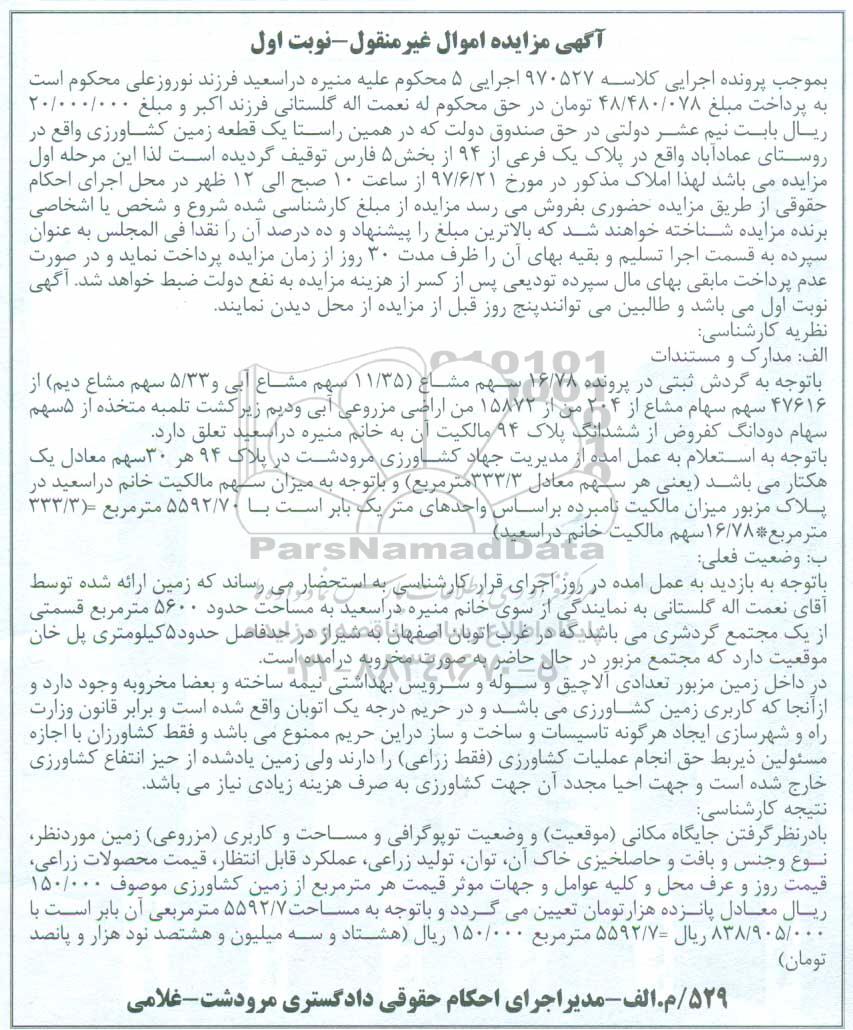 آگهی مزایده اموال غیرمنقول-نوبت اول
بموجب پرونده اجرایی کلاسه ۹۷۰۵۲۷ اجرایی ۵ محکوم علیه منیره دراسعید فرزند نوروزعلی محکوم است
به پرداخت مبلغ ۴۸/۴۸۰/۰۷۸ تومان در حق محکوم له نعمت اله گلستانی فرزند اکبر و مبلغ ۲۰/۰۰۰/۰۰۰
ریال بابت نیم عشر دولتی در حق صندوق دولت که در همین راستا یک قطعه زمین کشاورزی واقع در
روستای عمادآباد واقع در پلاک یک فرعی از ۹۴ از بخش۵ فارس توقیف گردیده است لذا این مرحله اول
مزایده می باشد لهذا املاک مذکور در مورخ ۹۷/۶/۲۱ از ساعت ۱۰ صبح الی ۱۲ ظهر در محل اجرای احکام
حقوقی از طریق مزایده حضوری بفروش می رسد مزایده از مبلغ کارشناسی شده شروع و شخص یا اشخاصی
برنده مزایده شناخته خواهند شد که بالاترین مبلغ را پیشنهاد و ده درصد آن را نقدا فی المجلس به عنوان
سپرده به قسمت اجرا تسلیم و بقیه بهای آن را ظرف مدت ۳۰ روز از زمان مزایده پرداخت نماید و در صورت
عدم پرداخت مابقی بهای مال سپرده تودیعی پس از کسر از هزینه مزایده به نفع دولت ضبط خواهد شد. آگهی
نوبت اول می باشد و طالبین می توانندپنج روز قبل از مزایده از محل دیدن نمایند.
نظریه کارشناسی:
الف: مدارک و مستندات
باتوجه به گردش ثبتی در پرونده ۱۶/۷۸ سهم مشاع (۱۱/۳۵ سهم مشاع آبی و۵/۳۳ سهم مشاع دیم) از
۴۷۶۱۶ سهم سهام مشاع از ۲۰۴ من از ۱۵۸۷۲ من اراضی مزروعی آبی ودیم زیرکشت تلمبه متخذه از ۵سهم
سهام دودانگ کفروض از ششدانگ پلاک ۹۴ مالکیت آن به خانم منیره دراسعید تعلق دارد.
باتوجه به استعلام به عمل امده از مدیریت جهاد کشاورزی مرودشت در پلاک ۹۴ هر ۳۰سهم معادل یک
هکتار می باشد (یعنی هر سهم معادل ۳۳۳/۳مترمربع) و باتوجه به میزان سهم مالکیت خانم دراسعید در
پلاک مزبور میزان مالکیت نامبرده براساس واحدهای متر یک بابر است با ۵۵۹۲/۷۰ مترمربع =(۳۳۳/۳
مترمربع*۱۶/۷۸سهم مالکیت خانم دراسعید)
ParsNamadData
ب: وضعیت فعلی:
باتوجه به بازدید به عمل امده در روز اجرای قرار کارشناسی به استحضار می رساند که زمین ارائه شده توسط
آقای نعمت اله گلستانی به نمایندگی از سوی خانم منیره دراسعید به مساحت حدود ۵۶۰۰ مترمربع قسمتی
از یک مجتمع گردشری می باشد که در غرب اتوبان اصفهان به شیراز در حدفاصل حدود۵کیلومتری پل خان
موقعیت دارد که مجتمع مزبور در حال حاضر به صورت مخروبه درامده است.
۰۲۱-۸۸۳۴۹۶۷۰-۵
در داخل زمین مزبور تعدادی آلاچیق و سوله و سرویس بهداشتی نیمه ساخته و بعضا مخروبه وجود دارد و
ازآنجا که کاربری زمین کشاورزی می باشد و در حریم درجه یک اتوبان واقع شده است و برابر قانون وزارت
راه و شهرسازی ایجاد هرگونه تاسیسات و ساخت و ساز دراین حریم ممنوع می باشد و فقط کشاورزان با اجازه
مسئولین ذیربط حق انجام عملیات کشاورزی (فقط زراعی) را دارند ولی زمین یادشده از حیز انتفاع کشاورزی
خارج شده است و جهت احیا مجدد آن جهت کشاورزی به صرف هزینه زیادی نیاز می باشد.
نتیجه کارشناسی:
بادرنظرگرفتن جایگاه مکانی (موقعیت) و وضعیت توپوگرافی و مساحت و کاربری (مزروعی) زمین موردنظر،
نوع وجنس و بافت و حاصلخیزی خاک آن، توان، تولید زراعی، عملکرد قابل انتظار، قیمت محصولات زراعی،
قیمت روز و عرف محل و کلیه عوامل و جهات موثر قیمت هر مترمربع از زمین کشاورزی موصوف ۱۵۰/۰۰۰
ریال معادل پانزده هزارتومان تعیین می گردد و باتوجه به مساحت۵۵۹۲/۷ مترمربعی آن بابر است با
۸۳۸/۹۰۵/۰۰۰ ریال =۵۵۹۲/۷ مترمربع ۱۵۰/۰۰۰ ریال (هشتاد و سه میلیون و هشتصد نود هزار و پانصد
تومان)
۵۲۹/م.الف-مدیراجرای احکام حقوقی دادگستری مرودشت-غلامی